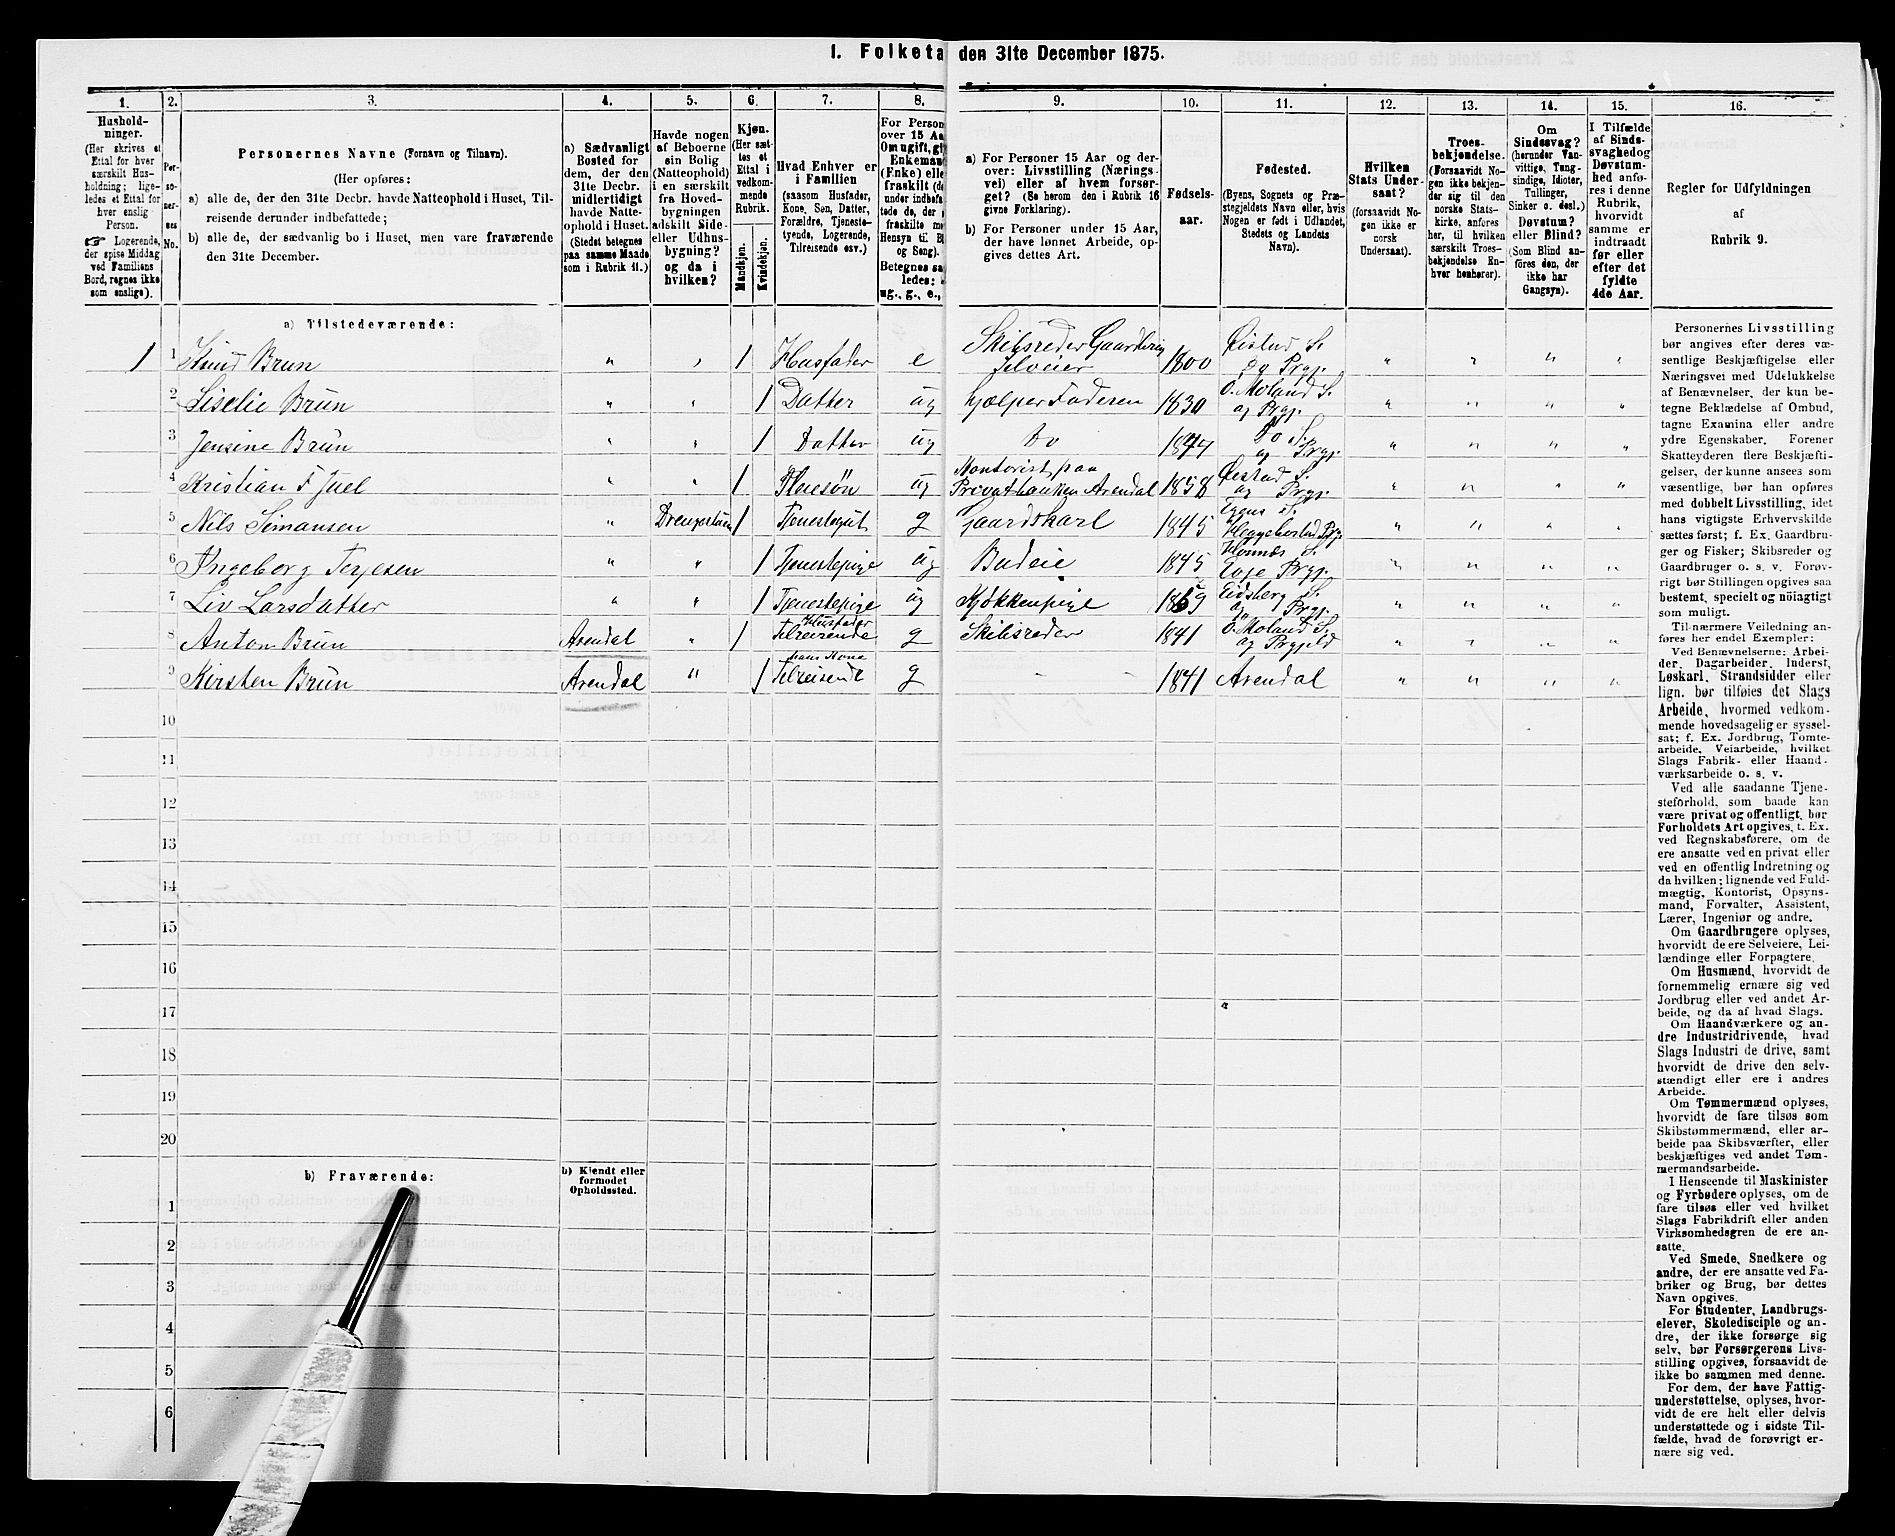 1. Folketa den 31te December 1875.
1. 2. 3. 4. 5. 6. 7. 8. 9. 10. 11. 12. 13. 14. 15. 16.
Hushold-
ninger.
(Her skrives et
Ettal for hver
særskilt Hus-
holdning; lige-
ledes et Ettal for
hver enslig
Person.
☞ Logerende,
der spise Middag
ved Familiens
Bord, regnes ikke
som enslige).
Per-
so-
ner-
nes
No.
Personernes Navne (Fornavn og Tilnavn).
(Her opføres:
a) alle de, der den 31te Decbr. havde Natteophold i Huset, Til-
reisende derunder indbefattede;
b) alle de, der sædvanlig bo i Huset, men vare fraværende
den 31te December.
a) Sædvanligt
Bosted for
dem, der den
31te Decbr.
midlertidigt
havde Natte-
ophold i Huset.
(Stedet betegnes
paa samme Maade
som i Rubrik 11.)
Havde nogen
af Beboerne
sin Bolig
(Natteophold)
i en særskilt
fra Hoved-
bygningen
adskilt Side-
eller Udhus-
bygning?
og da i
hvilken?
Kjøn.
(Her sæt-
tes et
Ettal i
vedkom-
mende
Rubrik.
Mandkjøn.
Kvindekjøn.
Hvad Enhver er
i Familien
(saasom Husfader,
Kone, Søn, Datter,
Forældre, Tjeneste-
tyende, Logerende,
Tilreisende osv.)
For Person
over 15 Aa
Om ugift, gi
Enkemand
(Enke) elle
fraskilt (de
under indbefa
tede de, der
fraskilte me
Hensyn til B
og Seng).
Betegnes sa
ledes:
ug., g., e.,
a) For Personer 15 Aar og der-
over: Livsstilling (Nærings-
vei) eller af hvem forsør-
get? (Se herom den i Rubrik 16
givne Forklaring).
b) For Personer under 15 Aar,
der have lønnet Arbeide, op-
gives dettes Art.
Fødsels-
aar.
Fødested.
(Byens, Sognets og Præ-
stegjeldets Navn eller, hvis
Nogen er født i Udlandet,
Stedets og Landets
Navn).
Hvilken
Stats Under-
saat?
(forsaavidt No-
gen ikke er
norsk
Undersaat).
Troes-
bekjendelse.
(Forsaavidt No-
gen ikke bekjen-
der sig til den
norske Stats-
kirke, anføres
her, til hvilken
særskilt Troes-
bekjendelse En-
hver henhører).
Om
Sindssvag?
(herunder Van-
vittige, Tung-
sindige, Idioter,
Tullinger,
Sinker o. desl.)
Døvstum?
eller Blind?
(Som Blind an-
føres den, der
ikke har
Gangsyn).
I Tilfælde
af Sinds-
svaghed og
Døvstum-
hed anfø-
res i denne
Rubrik,
hvorvidt
samme er
indtraadt
før eller
efter det
fyldte
4de Aar.
Regler for Udfyldningen
af
Rubrik 9.
a) Tilstedeværende:
1 1 Knud Brun " " 1 Husfader e Skibsreder Gaardbrug Selveier 1800 Øiestad S. og Prgj. " " " "
2 Liselie Brun " " 1 Datter ug hjælper Faderen 1830 Ø. Moland S. og Prgj. " " " "
3 Jensine Brun " " 1 Datter ug Do 1847 Do S. og Prgj. " " " "
4 Kristian F Juel " " 1 Plesøn ug Kontorist paa Privatbanken Arendal 1858 Øiestad S. og Prgj. " " " "
5 Nils Simonsen " Drengestuen 1 Tjenestegut g Gaardskarl 1845 Hægebostad Prgj. " " " "
6 Ingeborg Terjesen " " 1 Tjenestepige ug Budeie 1845 Hornnæs S. Evje Prgj. " " " "
7 Liv Larsdatter " " 1 Tjenestepige ug Kjøkkenpige 1859 Eidsberg S. og Prgj. " " " "
8 Anton Brun Arendal " 1 Husfader Tilreisende g Skibsreder 1841 Ø. Moland S. og Prgjeld " " " "
9 Kirsten Brun Arendal " 1 hans Kone Tilreisende g - - 1841 Arendal " " " "
10
11
12
13
14
15
16
17
18
19
20
b) Fraværende:
b) Kjendt eller
formodet
Opholdssted.
1
2
3
4
5
6
Personernes Livsstilling
bør angives efter deres væ-
sentlige Beskjæftigelse eller
Næringsvei med Udelukkelse
af Benævnelser, der kun be-
tegne Beklædelse af Ombud,
tagne Examina eller andre
ydre Egenskaber. Forener
Skatteyderen flere Beskjæfti-
gelser, der kunne ansees som
væsentlige, bør han opføres
med dobbelt Livsstilling, idet
hans vigtigste Erhvervskilde
sættes først; f. Ex. Gaardbru-
ger og Fisker; Skibsreder og
Gaardbruger o. s. v. Forøv-
rigt bør Stillingen opgives saa
bestemt, specielt og nøiagtigt
som muligt.
Til nærmere Veiledning an-
føres her endel Exempler:
Ved Benævnelserne: Arbei-
der, Dagarbeider, Inderst,
Løskarl, Strandsidder eller
lign. bør tilføies det Slags
Arbeide, hvormed vedkom-
mende hovedsagelig er syssel-
sat; f. Ex. Jordbrug, Tomte-
arbeide, Veiarbeide, hvilket
Slags Fabrik- eller Haand-
værksarbeide o. s. v.
Ved alle saadanne Tjene-
steforhold, som baade kan
være privat og offentligt, bør
Forholdets Art opgives, t. Ex.
ved Regnskabsførere, om de
ere ansatte ved en privat eller
ved en offentlig Indretning og
da hvilken; lignende ved Fuld-
mægtig, Kontorist, Opsyns-
mand, Forvalter, Assistent,
Lærer, Ingeniør og andre.
Om Gaardbrugere oplyses,
hvorvidt de ere Selveiere, Lei-
lændinge eller Forpagtere.
Om Husmænd, hvorvidt de
fornemmelig ernære sig ved
Jordbrug eller ved andet Ar-
beide, og da af hvad Slags.
Om Haandværkere og an-
dre Industridrivende, hvad
Slags Industri de drive, samt
hvorvidt de drive den selv-
stændigt eller ere i andres
Arbeide.
Om Tømmermænd oplyses,
hvorvidt de fare tilsøs som
Skibstømmermænd, eller ar-
beide paa Skibsværfter, eller
beskjæftiges ved andet Tøm-
mermandsarbeide.
I Henseende til Maskinister
og Fyrbødere oplyses, om de
fare tilsøs eller ved hvilket
Slags Fabrikdrift eller anden
Virksomhedsgren de ere an-
satte.
Ved Smede, Snedkere og
andre, der ere ansatte ved Fa-
briker og Brug, bør dettes
Navn opgives.
For Studenter, Landbrugs-
elever, Skoledisciple og an-
dre, der ikke forsørge sig
selv, bør Forsørgerens Livs-
stilling opgives, forsaavidt de
ikke bo sammen med denne.
For dem, der have Fattig-
understøttelse, oplyses, hvor-
vidt de ere helt eller delvis
understøttede og i sidste Til-
fælde, hvad de forøvrigt er-
nære sig ved.